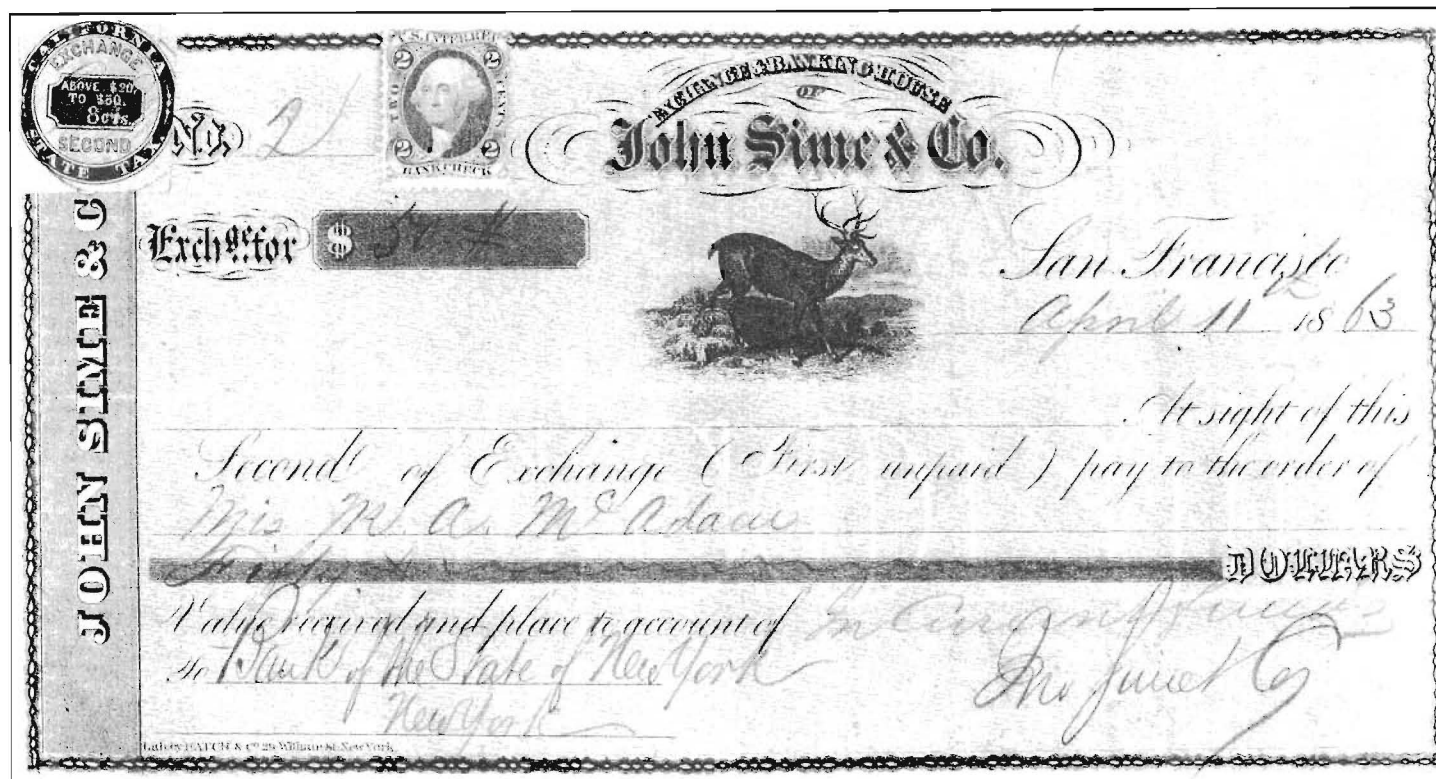 CALIFORNIA
EXCHANGE
ABOVE $20,
TO $50.
8 cts.
SECOND
STATE TAX
U.S. INTER. REV.
2 2
TWO CENTS
2 2
BANK CHECK
No. 2
EXCHANGE & BANKING HOUSE
OF
John Sime & Co.
JOHN SIME & C
Exchge. for $ 50
San Francisco
April 11th 1863
At sight of this
Second of Exchange (First unpaid) pay to the order of
M. A. McAdam
Fifty DOLLARS
Value received and place to account of In Current Funds
To Bank of the State of New York
New York
Jno Sime & Co
Lith. by HATCH & Co. 29 William St. New York